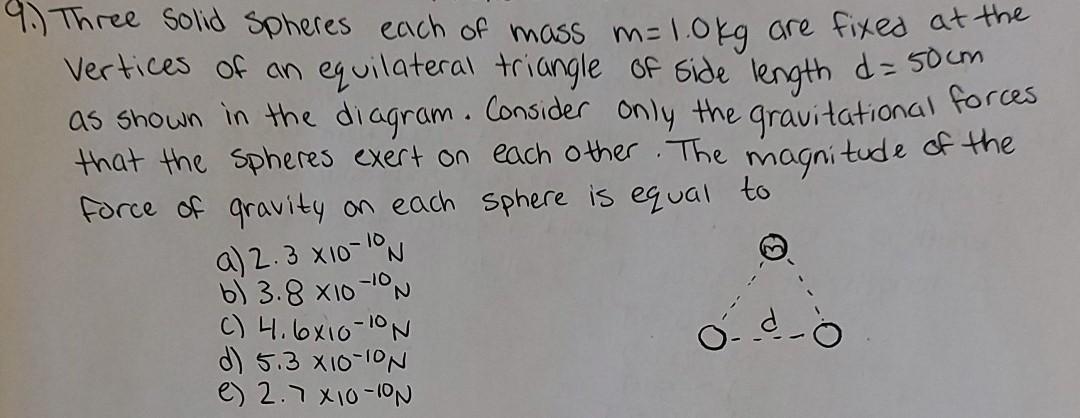 9.) Three solid spheres each of mass m=1.0kg are fixed at the
vertices of an equilateral triangle of side length d=50cm
as shown in the diagram. Consider only the gravitational forces
that the spheres exert on each other. The magnitude of the
force of gravity on each sphere is equal to
a) 2.3 x10⁻¹⁰N
b) 3.8 x10⁻¹⁰N
c) 4.6x10⁻¹⁰N
d) 5.3 x10⁻¹⁰N
e) 2.7 x10⁻¹⁰N
m
d